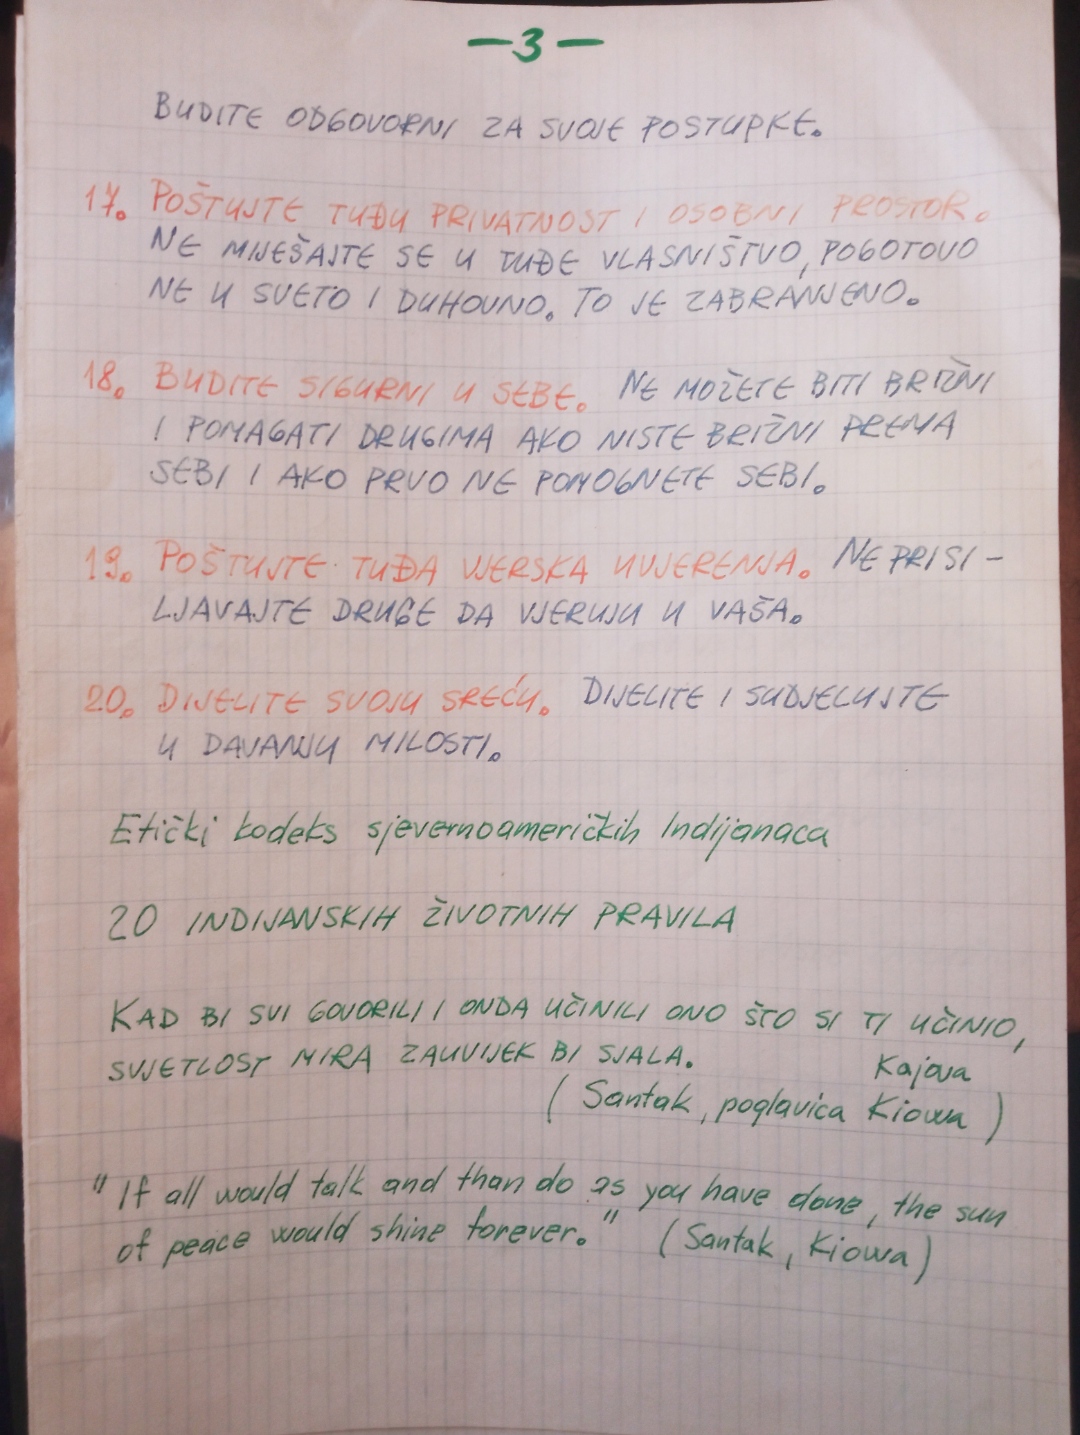 — 3 —
BUDITE ODGOVORNI ZA SVOJE POSTUPKE.
17. POŠTUJTE TUĐU PRIVATNOST I OSOBNI PROSTOR.
NE MIJEŠAJTE SE U TUĐE VLASNIŠTVO, POGOTOVO
NE U SVETO I DUHOVNO. TO JE ZABRANJENO.
18. BUDITE SIGURNI U SEBE. NE MOŽETE BITI BRIŽNI
I POMAGATI DRUGIMA AKO NISTE BRIŽNI PREMA
SEBI I AKO PRVO NE POMOGNETE SEBI.
19. POŠTUJTE TUĐA VJERSKA UVJERENJA. NE PRISI-
LJAVAJTE DRUGE DA VJERUJU U VAŠA.
20. DIJELITE SVOJU SREĆU. DIJELITE I SUDJELUJTE
U DAVANJU MILOSTI.
Etički kodeks sjevernoameričkih Indijanaca
20 INDIJANSKIH ŽIVOTNIH PRAVILA
KAD BI SVI GOVORILI I ONDA UČINILI ONO ŠTO SI TI UČINIO,
SVJETLOST MIRA ZAUVIJEK BI SJALA.
Kajova
(Santak, poglavica Kiowa)
"If all would talk and than do as you have done, the sun
of peace would shine forever." (Santak, Kiowa)